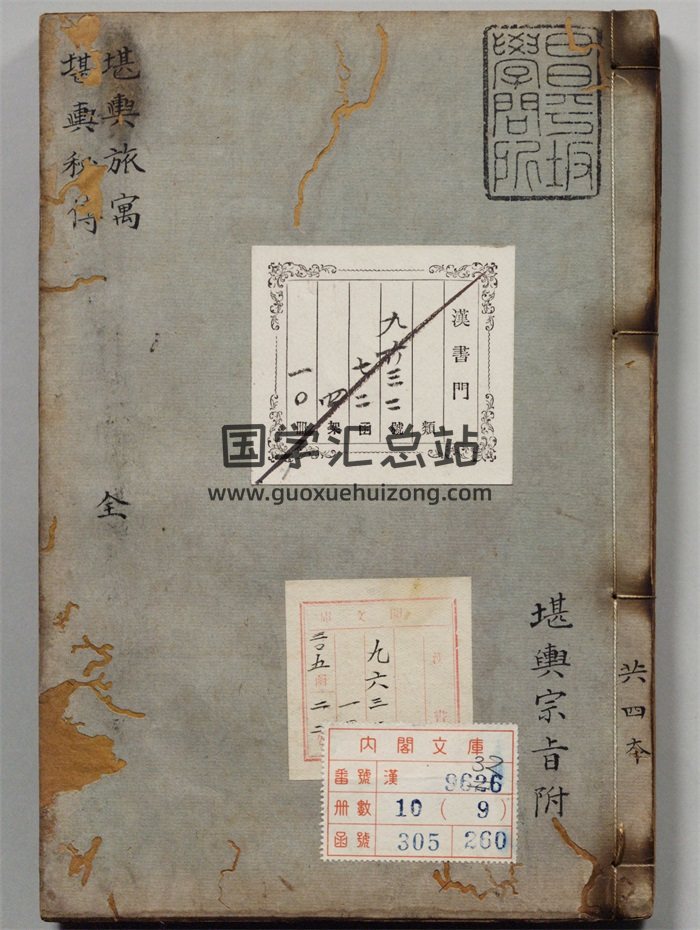 堪輿旅寓
堪輿秘傳
全
昌平坂
學問所
漢書門
九六三二
七二
四
一〇
類
號
函
架
冊
国学汇总站
www.guoxuehuizong.com
九六三
二〇五
函
二二
堪輿宗旨附
共四本
內閣文庫
番號 漢 9626
32
冊數 10 ( 9 )
函號 305 260